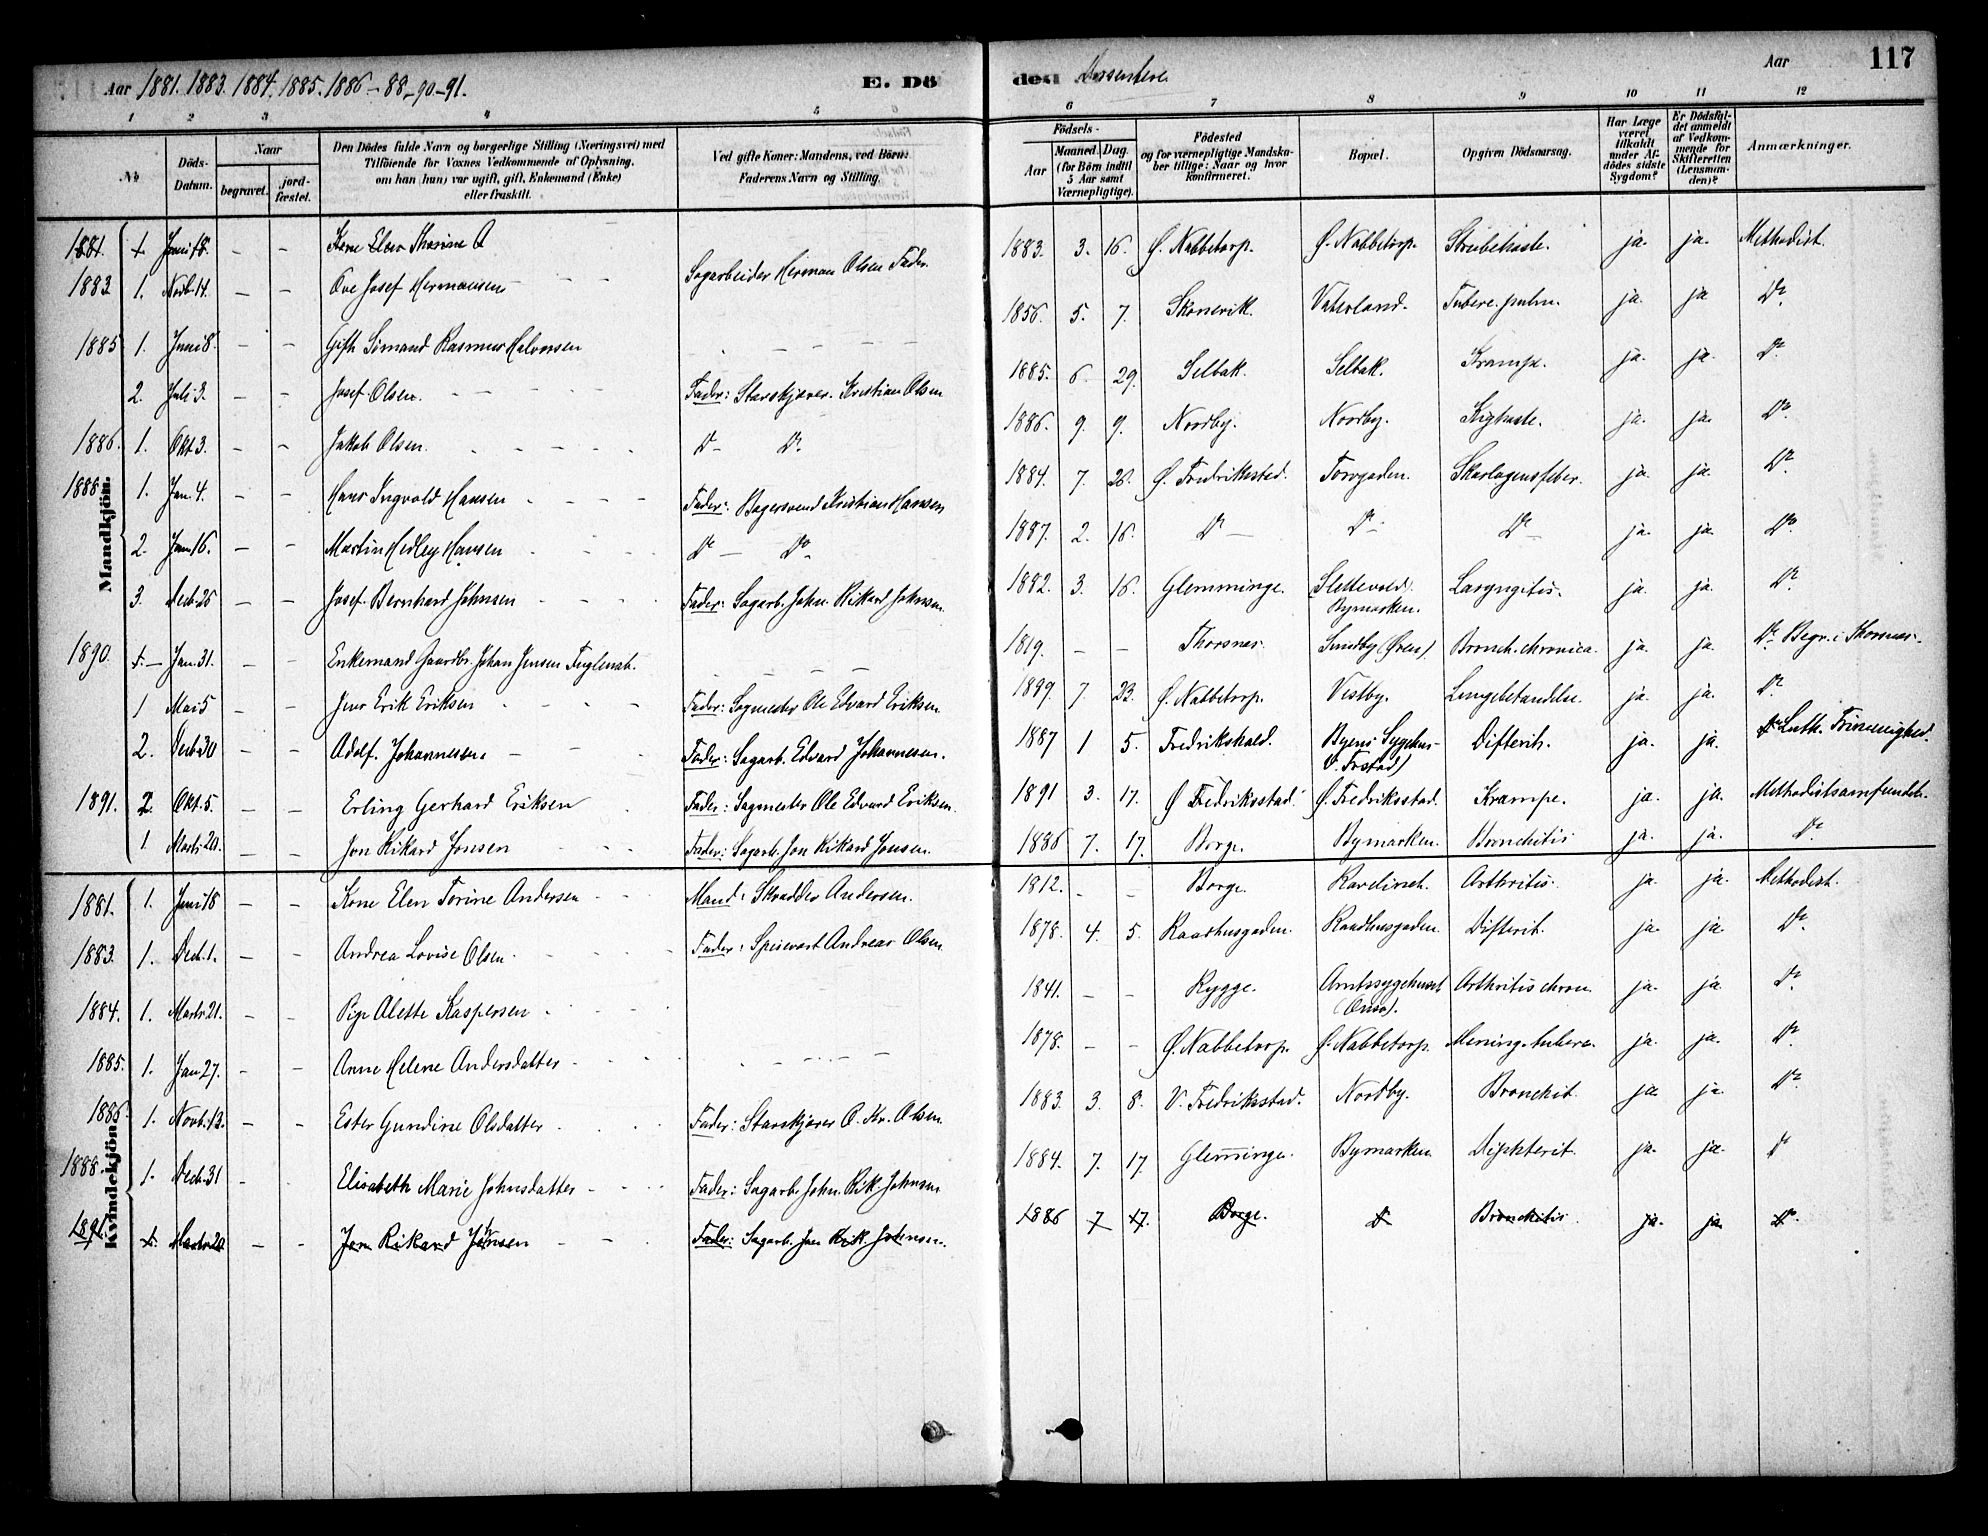 Aar 1881. 1883. 1884. 1885. 1886 – 88 – 90 – 91. E. Dö den Dissentere Aar 117
1 2 3 4 5 6 7 8 9 10 11 12
No Döds-Datum. Naar begravet. jord-fæstet. Den Dödes fulde Navn og borgerlige Stilling (Næringsvei) med Tilföiende for Voxnes Vedkommende af Oplysning, om han (hun) var ugift, gift, Enkemand (Enke) eller fraskilt. Ved gifte Koner: Mandens, ved Börn: Faderens Navn og Stilling. Födsels- Aar Maaned. Dag. (for Börn indtil 5 Aar samt Værnepligtige). Födested og for værnepligtige Mandskaber tillige: Naar og hvor konfirmeret. Bopæl. Opgiven Dödsaarsag. Har Læge været tilkaldt under Afdödes sidste Sygdom? Er Dödsfaldet anmeldt af Vedkommende for Skifteretten (Lensmanden)? Anmærkninger.
Mandkjön.
1881. 1. Juni 18. – – Kone Elen Thorine A
1883 1. Novb. 14. – – Ove Josef Hermansen – – Sagarbeider Herman Olsen Fader. 1883. 3. 16. Ø. Nabbetorp. Ø. Nabbetorp. Strubehoste. ja. ja. Methodist.
1885 1. Juni 8. – – Gift Sömand Rasmus Halvorsen – – – – 1856. 5. 7. Skonevik. Vaterland. Tuberc. pulm. ja. ja Do.
2. Juli 3. – – Josef Olsen. – – – Fader: Starskjører. Kristian Olsen 1885. 6. 29. Selbak. Selbak. Krampe. ja. ja. Do.
1886. 1. Okt 3. – – Jakob Olsen. – – – – Do – Do. 1886. 9. 9. Nordby. Nordby. Kighoste. ja. ja. Do.
1888. 1. Jan. 4. – – Hans Ingvold Hansen – – – – Fader: Bagersvend Kristian Hansen 1884. 7. 26. Ø. Fredrikstad. Torvgaden. Skarlagensfeber. ja. ja. Do.
2. Jan 16. – – Martin Hedley Hansen – – – Do – Do. 1887. 2. 16. Do – Do – Do – ja. ja. Do.
3. Decb. 25 – – Josef Bernhard Johnsen – – – – Fader: Sagarb. John Rikard Johnsen. 1882. 3. 16. Glemminge. Slettevold) Bymarken. Laryngitis. ja. ja. Do.
1890. 1. – Jan. 31. – – Enkemand Gaardbr. Johan Jensen Fuglenab. – – 1819. – – Thorsnes. Sundby (Øens). Bronch. chronica. ja. ja. Do. Begr. i Thorsnes.
1 Mai 5 – – Jens Erik Eriksen – – – – Fader: Sagmester Ole Edvard Eriksen. 1889. 7. 23. Ø. Nabbetorp. Vestby. Lungebetændelse. ja. ja. Do.
2. Decb 30 – – Adolf. Johannesen. – – – Fader: Sagarb. Edvard Johannesen. 1887 1 5. Fredrikshald. Byens Sygehus V. Fstad) Difterit. ja. ja. Luth. Frimenighed.
1891. 2 Okt. 5. – – Erling Gerhard Eriksen – Fader: Sagmester Ole Edvard Eriksen. 1891 3. 17. Ø Fredriksstad. Ø. Fredriksstad. Krampe. ja. ja. Methodistsamfundet.
1 Marts 20. – – Jon Rikard Jonsen – – – Fader: Sagarb. Jon Rikard Jonsen. 1886 7. 17. Borge. Bymarken. Bronchitis ja. ja. Do
Kvindekjön.
1881. 1. Juni 18 – – Kone Elen Torine Andersen – – Mand: Skrædder Andersen. 1812. – – Borge. Ravelinet. Arthritis. ja. ja. Methodist.
1883. 1. Decb. 1. – – Andrea Lovise Olsen – – – – Fader: Spisevært Andreas Olsen 1878. 4. 5. Raadhusgaden. Raadhusgaden. Difterit. ja. ja. Do.
1884. 1. Marts 21. – – Pige Alette Kaspersen – – – 1841. – – Rygge. Amtssygehuset (Onsø). Arthritis chron. ja. ja. Do.
1885. 1. Jan 27. – – Anne Helene Andersdatter – – – – – – – 1878. – – Ø. Nabbetorp. Ø. Nabbetorp. Mening. tuberc. ja. ja. Do.
1886. 1. Novb. 13. – – Ester Gundine Olsdatter – – – Fader: Starskjører O. Kr. Olsen. 1883. 3. 8. V. Fredriksstad. Nordby. Bronchit. ja. ja Do
1888. 1. Decb. 31 – – Elisabeth Marie Johnsdatter – – – Fader: Sagarb. John. Rik. Johnsen 1884. 7. 17 Glem̅inge. Bymarken Diphterit. ja. ja. Do
1891. 1. Marts 20 – – Jon Rikard Johnsen – – Fader: Sagarb. Jon Rik. Johnsen. 1886 7 17. Borge. Do Bronchitis. ja. ja Do.